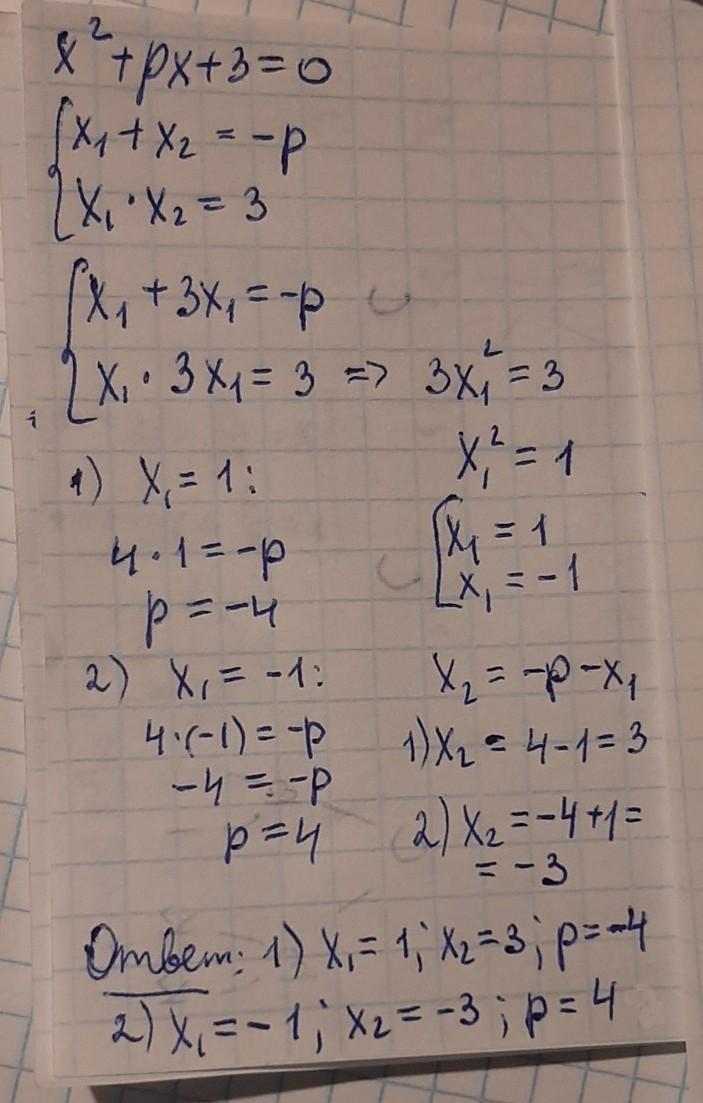 x² + px + 3 = 0
{ x₁ + x₂ = -p
{ x₁ · x₂ = 3
{ x₁ + 3x₁ = -p
{ x₁ · 3x₁ = 3 => 3x₁² = 3
x₁² = 1
[ x₁ = 1
[ x₁ = -1
1) x₁ = 1:
4 · 1 = -p
p = -4
2) x₁ = -1:
4 · (-1) = -p
-4 = -p
p = 4
x₂ = -p - x₁
1) x₂ = 4 - 1 = 3
2) x₂ = -4 + 1 =
= -3
Ответ: 1) x₁ = 1; x₂ = 3; p = -4
2) x₁ = -1; x₂ = -3; p = 4